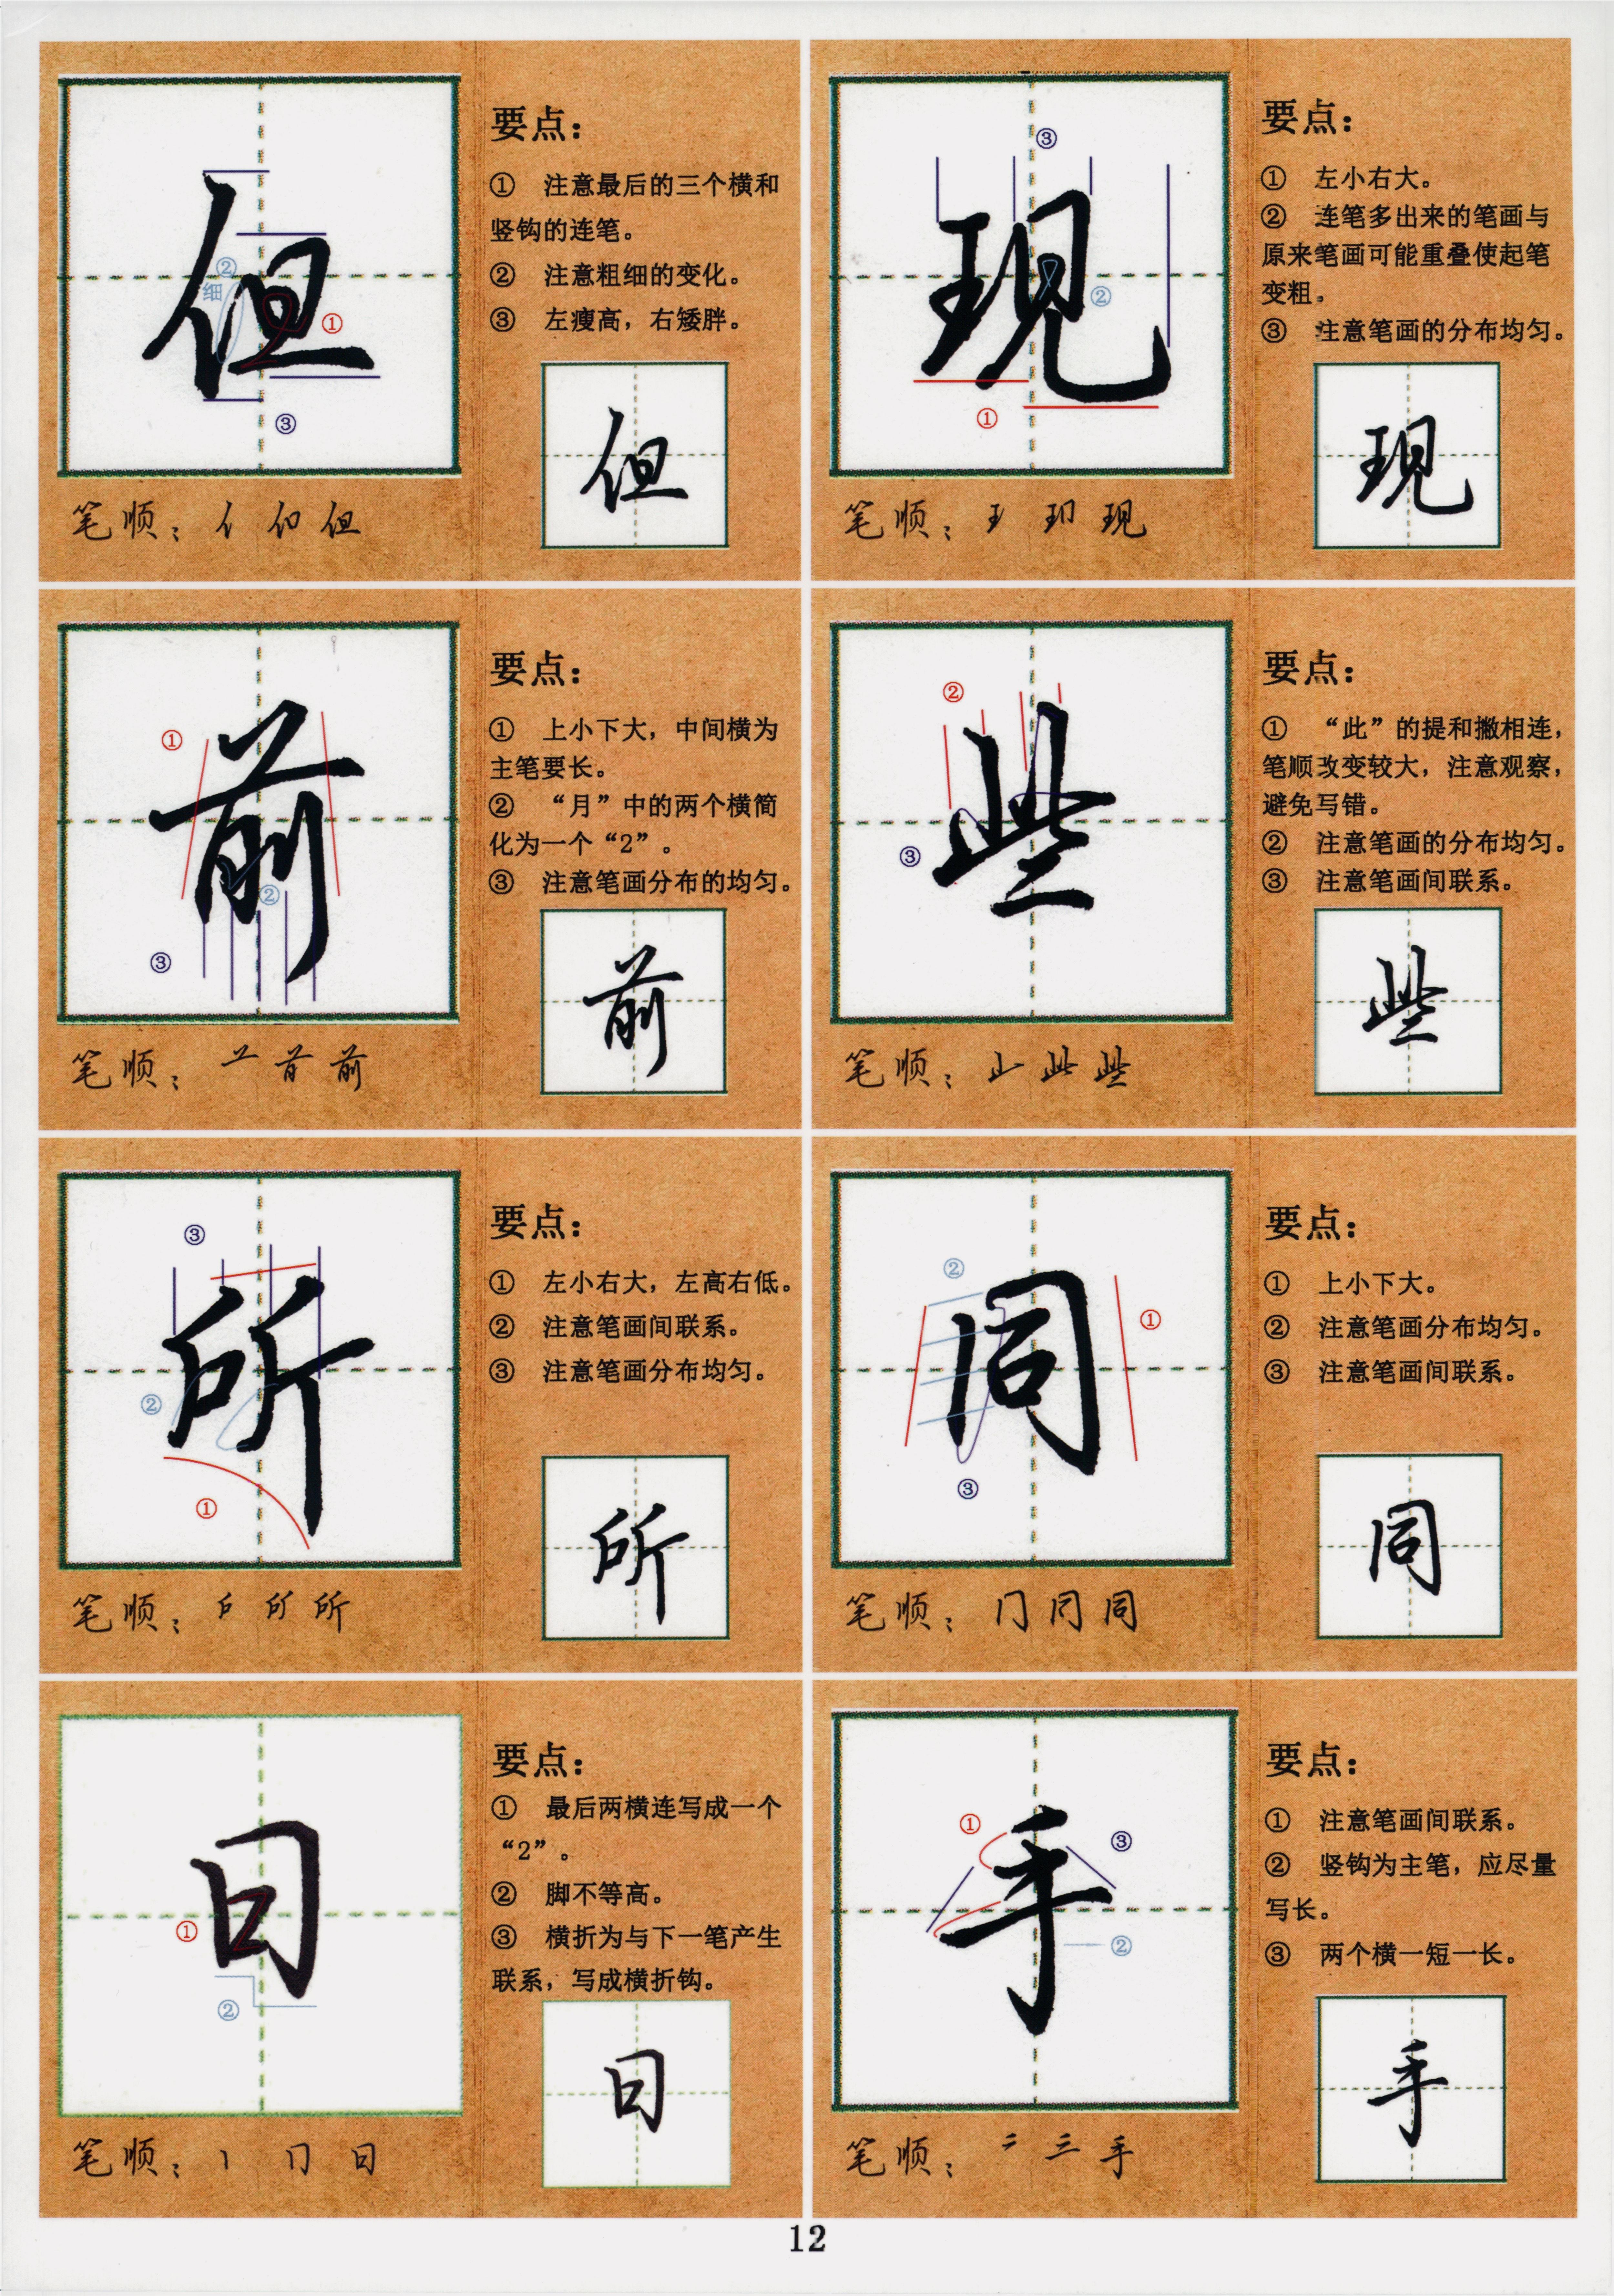 但
②
细
①
③
笔顺：亻 们 但
要点：
① 注意最后的三个横和
竖钩的连笔。
② 注意粗细的变化。
③ 左瘦高，右矮胖。
但
现
③
②
①
笔顺：王 玥 现
要点：
① 左小右大。
② 连笔多出来的笔画与
原来笔画可能重叠使起笔
变粗。
③ 注意笔画的分布均匀。
现
前
①
②
③
笔顺：前
要点：
① 上小下大，中间横为
主笔要长。
② “月”中的两个横简
化为一个“2”。
③ 注意笔画分布的均匀。
前
些
②
③
笔顺：止 此 些
要点：
① “此”的提和撇相连，
笔顺改变较大，注意观察，
避免写错。
② 注意笔画的分布均匀。
③ 注意笔画间联系。
些
所
③
②
①
笔顺：所
要点：
① 左小右大，左高右低。
② 注意笔画间联系。
③ 注意笔画分布均匀。
所
同
②
①
③
笔顺：门 同
要点：
① 上小下大。
② 注意笔画分布均匀。
③ 注意笔画间联系。
同
日
①
②
笔顺：丨 冂 日
要点：
① 最后两横连写成一个
“2”。
② 脚不等高。
③ 横折为与下一笔产生
联系，写成横折钩。
日
手
①
③
②
笔顺：三 手
要点：
① 注意笔画间联系。
② 竖钩为主笔，应尽量
写长。
③ 两个横一短一长。
手
12